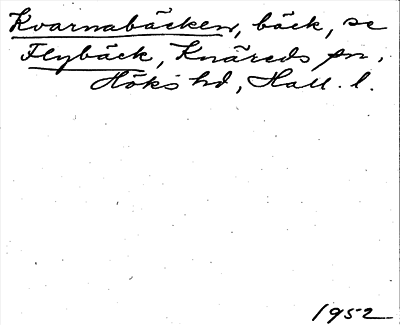 Kvarnabäcken, bäck, se
Flybäck, Knäreds sn,
Höks hd, Hall. l.
1952